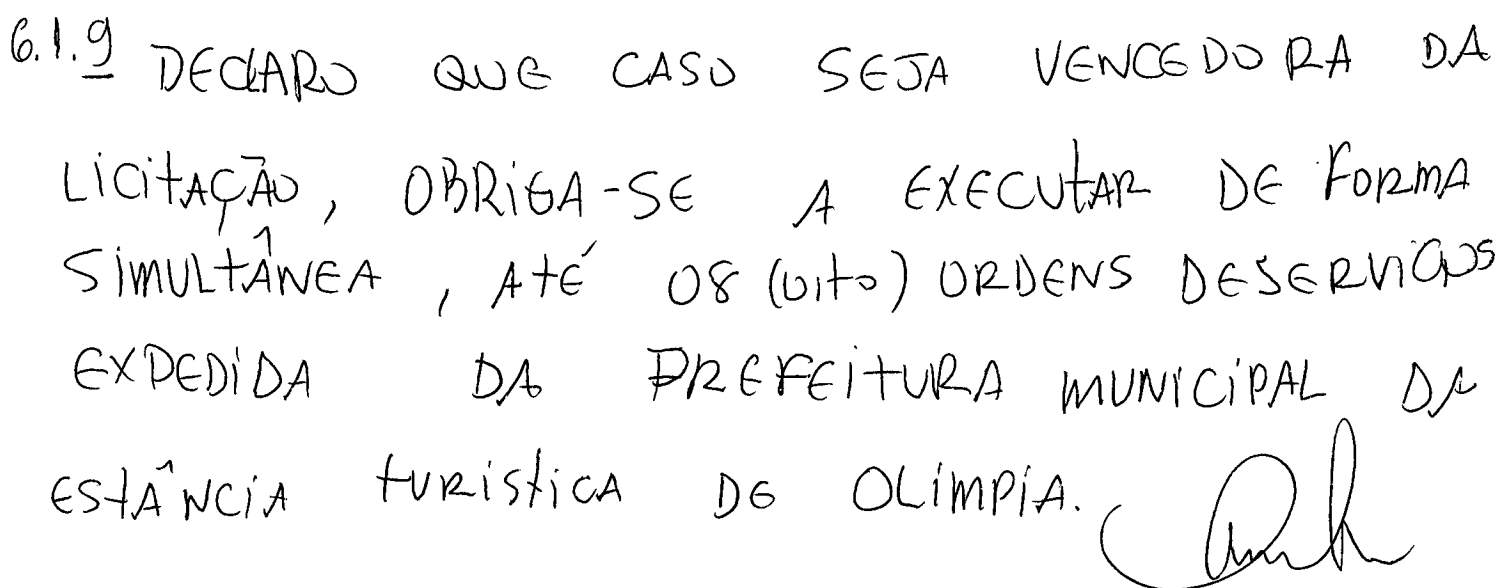 6.1.9 DECLARO QUE CASO SEJA VENCEDORA DA
LICITAÇÃO, OBRIGA-SE A EXECUTAR DE FORMA
SIMULTÂNEA, ATÉ 08 (oito) ORDENS DE SERVIÇOS
EXPEDIDA DA PREFEITURA MUNICIPAL DA
ESTÂNCIA TURISTICA DE OLIMPIA.